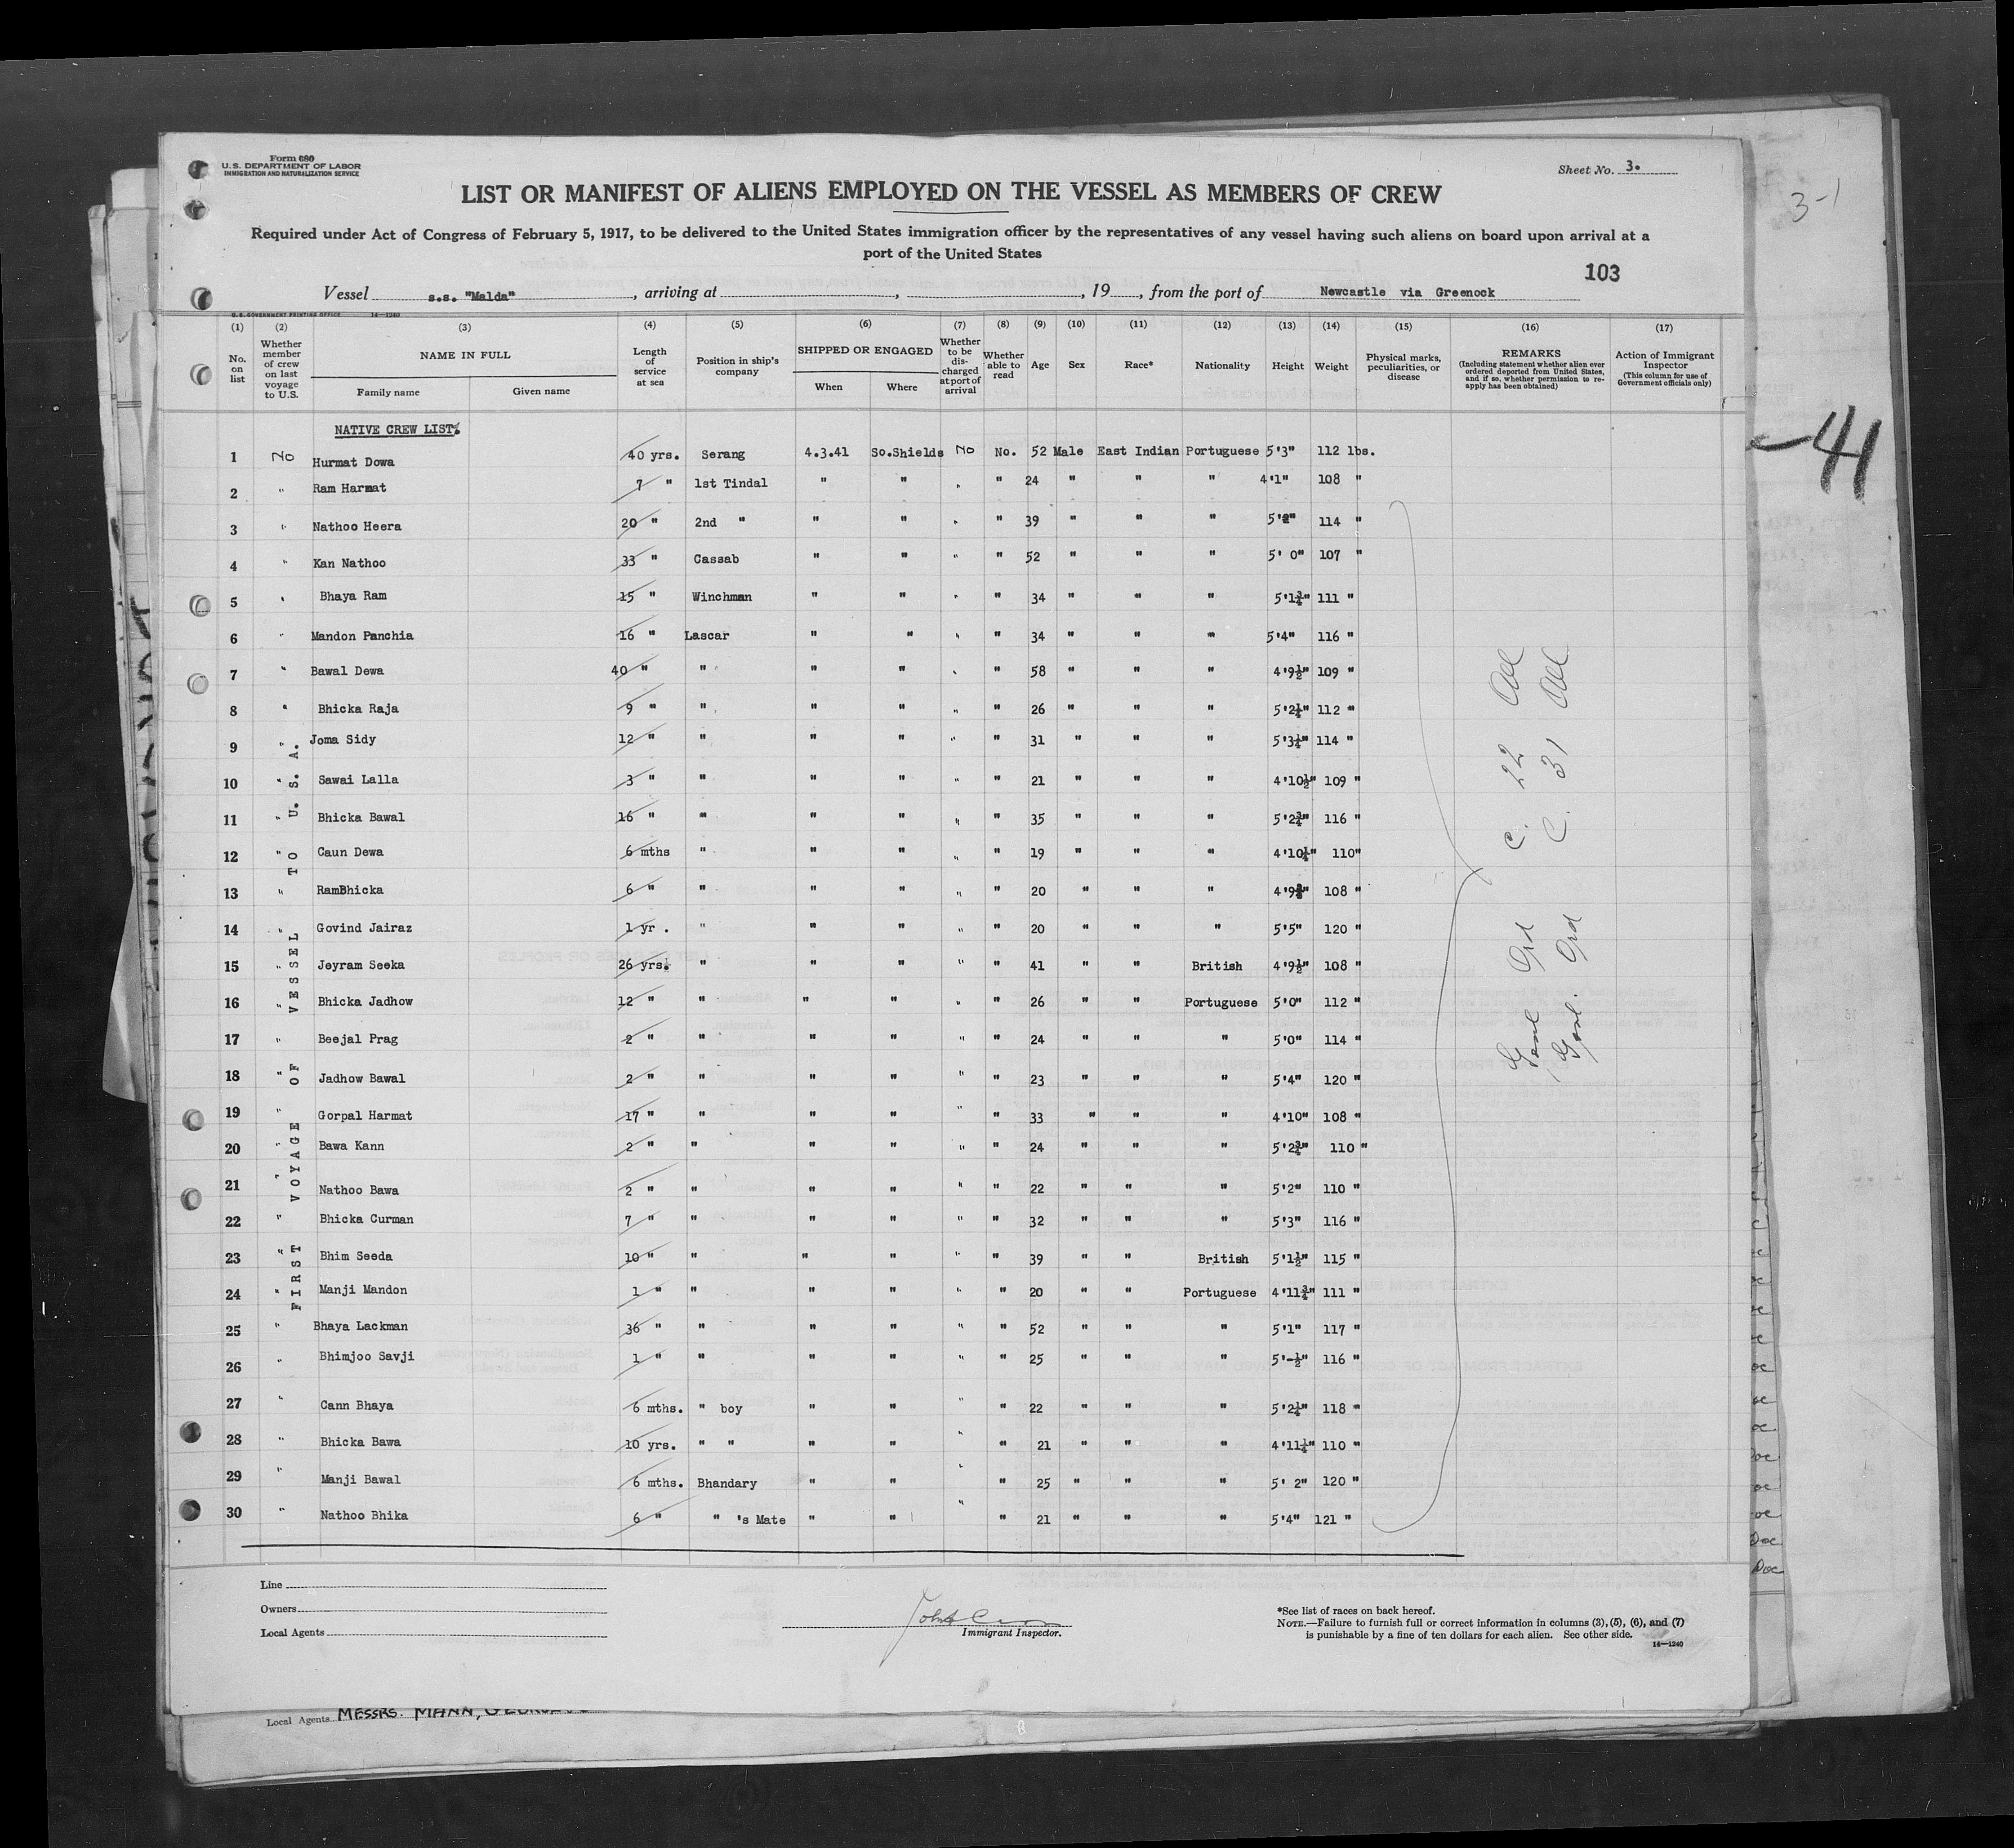 Form 680
U.S. DEPARTMENT OF LABOR
IMMIGRATION AND NATURALIZATION SERVICE
Sheet No. 3.
3-1
LIST OR MANIFEST OF ALIENS EMPLOYED ON THE VESSEL AS MEMBERS OF CREW
Required under Act of Congress of February 5, 1917, to be delivered to the United States immigration officer by the representatives of any vessel having such aliens on board upon arrival at a
port of the United States
103
Vessel s.s. "Malda", arriving at , , 19 , from the port of Newcastle via Greenock
U.S. GOVERNMENT PRINTING OFFICE 14—1240
(1) (2) (3) (4) (5) (6) (7) (8) (9) (10) (11) (12) (13) (14) (15) (16) (17)
No. on list
Whether member of crew on last voyage to U.S.
NAME IN FULL
Family name Given name
Length of service at sea
Position in ship's company
SHIPPED OR ENGAGED
When Where
Whether to be discharged at port of arrival
Whether able to read
Age
Sex
Race*
Nationality
Height
Weight
Physical marks, peculiarities, or disease
REMARKS
(Including statement whether alien ever ordered deported from United States, and if so, whether permission to re-apply has been obtained)
Action of Immigrant Inspector
(This column for use of Government officials only)
NATIVE CREW LIST.
1 No Hurmat Dowa 40 yrs. Serang 4.3.41 So.Shields No No. 52 Male East Indian Portuguese 5'3" 112 lbs.
2 " Ram Harmat 7 " 1st Tindal " " " " 24 " " " 4'1" 108 "
3 " Nathoo Heera 20 " 2nd " " " " " 39 " " " 5'2" 114 "
4 " Kan Nathoo 33 " Cassab " " " " 52 " " " 5' 0" 107 "
5 " Bhaya Ram 15 " Winchman " " " " 34 " " " 5'1¾" 111 "
6 " Mandon Panchia 16 " Lascar " " " " 34 " " " 5'4" 116 "
7 " Bawal Dewa 40 " " " " " " 58 " " " 4'9½" 109 "
8 " Bhicka Raja 9 " " " " " " 26 " " " 5'2¼" 112 "
9 " Joma Sidy 12 " " " " " " 31 " " " 5'3¼" 114 "
10 " Sawai Lalla 3 " " " " " " 21 " " " 4'10½" 109 "
11 " Bhicka Bawal 16 " " " " " " 35 " " " 5'2¾" 116 "
12 " Caun Dewa 6 mths " " " " " 19 " " " 4'10¼" 110"
13 " RamBhicka 6 " " " " " " 20 " " " 4'9 " 108 "
14 " Govind Jairaz 1 yr . " " " " " 20 " " " 5'5" 120 "
15 " Jeyram Seeka 26 yrs. " " " " " 41 " " British 4'9½" 108 "
16 " Bhicka Jadhow 12 " " " " " " 26 " " Portuguese 5'0" 112 "
17 " Beejal Prag 2 " " " " " " 24 " " " 5'0" 114 "
18 " Jadhow Bawal 2 " " " " " " 23 " " " 5'4" 120 "
19 " Gorpal Harmat 17 " " " " " " 33 " " " 4'10" 108 "
20 " Bawa Kann 2 " " " " " " 24 " " " 5'2¾" 110 "
21 " Nathoo Bawa 2 " " " " " " 22 " " " 5'2" 110 "
22 " Bhicka Curman 7 " " " " " " 32 " " " 5'3" 116 "
23 " Bhim Seeda 10 " " " " " " 39 " " British 5'1½" 115 "
24 " Manji Mandon 1 " " " " " " 20 " " Portuguese 4'11¾" 111 "
25 " Bhaya Lackman 36 " " " " " " 52 " " " 5'1" 117 "
26 " Bhimjoo Savji 1 " " " " " " 25 " " " 5'-½" 116 "
27 " Cann Bhaya 6 mths. " boy " " " " 22 " " " 5'2¼" 118 "
28 " Bhicka Bawa 10 yrs. " " " " " " 21 " " " 4'11¼" 110 "
29 " Manji Bawal 6 mths. Bhandary " " " " 25 " " " 5' 2" 120 "
30 " Nathoo Bhika 6 " " 's Mate " " " " 21 " " " 5'4" 121 "
FIRST VOYAGE OF VESSEL TO U.S.A.
C. 22
C. 31
-41
Line
Owners
Local Agents
Immigrant Inspector.
*See list of races on back hereof.
NOTE.—Failure to furnish full or correct information in columns (3), (5), (6), and (7)
is punishable by a fine of ten dollars for each alien. See other side.
14—1240
Local Agents MESSRS. MANN,